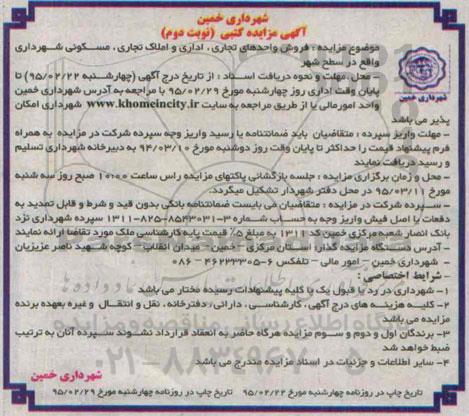 شهرداری خمین
آگهی مزایده کتبی (نوبت دوم)
موضوع مزایده : فروش واحدهای تجاری ، اداری و املاک تجاری ، مسکونی شهرداری
واقع در سطح شهر
- محل ،مهلت و نحوه دریافت اسناد : از تاریخ درج آگهی (چهارشنبه ۹۵/۰۲/۲۲) تا
پایان وقت اداری روز چهارشنبه مورخ ۹۵/۰۲/۲۹ با مراجعه به آدرس شهرداری خمین
واحد امورمالی یا از طریق مراجعه به سایت www.khomeincity.ir شهرداری امکان
پذیر می باشد
شهرداری خمین
- مهلت واریز سپرده : متقاضیان باید ضمانتنامه یا رسید واریز وجه سپرده شرکت در مزایده به همراه
فرم پیشنهاد قیمت را حداکثر تا پایان وقت روز دوشنبه مورخ ۹۴/۰۳/۱۰ به دبیرخانه شهرداری تسلیم
و رسید دریافت نمایند
- محل و زمان برگزاری مزایده : جلسه بازگشائی پاکتهای مزایده راس ساعت ۱۰:۰۰ صبح روز سه شنبه
مورخ ۹۵/۰۳/۱۱ در محل دفتر شهردار تشکیل میگردد.
- سپرده شرکت در مزایده : متقاضیان می بایست ضمانتنامه بانکی بدون قید و شرط و قابل تمدید به
دفعات یا اصل فیش واریز وجه به حساب شماره ۳-۸۵۴۳۰۳۱-۸۲۵-۱۳۱۱ سپرده شهرداری نزد
بانک انصار شعبه مرکزی خمین کد ۱۳۱۱ به مبلغ ۵٪ قیمت پایه کارشناسی ملک مورد تقاضا ارائه نمایند
- آدرس دستگاه مزایده گذار: استان مرکزی - خمین - میدان انقلاب - کوچه شهید ناصر عزیزیان
- شهرداری خمین - امور مالی - تلفکس ۶-۴۶۲۲۳۳۰۵ - ۰۸۶
- شرایط اختصاصی :
۱- شهرداری در رد یا قبول یک یا کلیه پیشنهادات رسیده مختار می باشد
۲- کلیه هزینه های درج آگهی، کارشناسی ، دارائی ،دفترخانه ، نقل و انتقال و غیره بعهده برنده
مزایده می باشد
۳- برندگان اول و دوم و سوم مزایده هرگاه حاضر به انعقاد قرارداد نشوند سپرده آنان به ترتیب
ضبط خواهد شد
۴- سایر اطلاعات و جزئیات در اسناد مزایده مندرج می باشد
شهرداری خمین
تاریخ چاپ در روزنامه چهارشنبه مورخ ۹۵/۰۲/۲۲ تاریخ چاپ در روزنامه چهارشنبه مورخ ۹۵/۰۲/۲۹